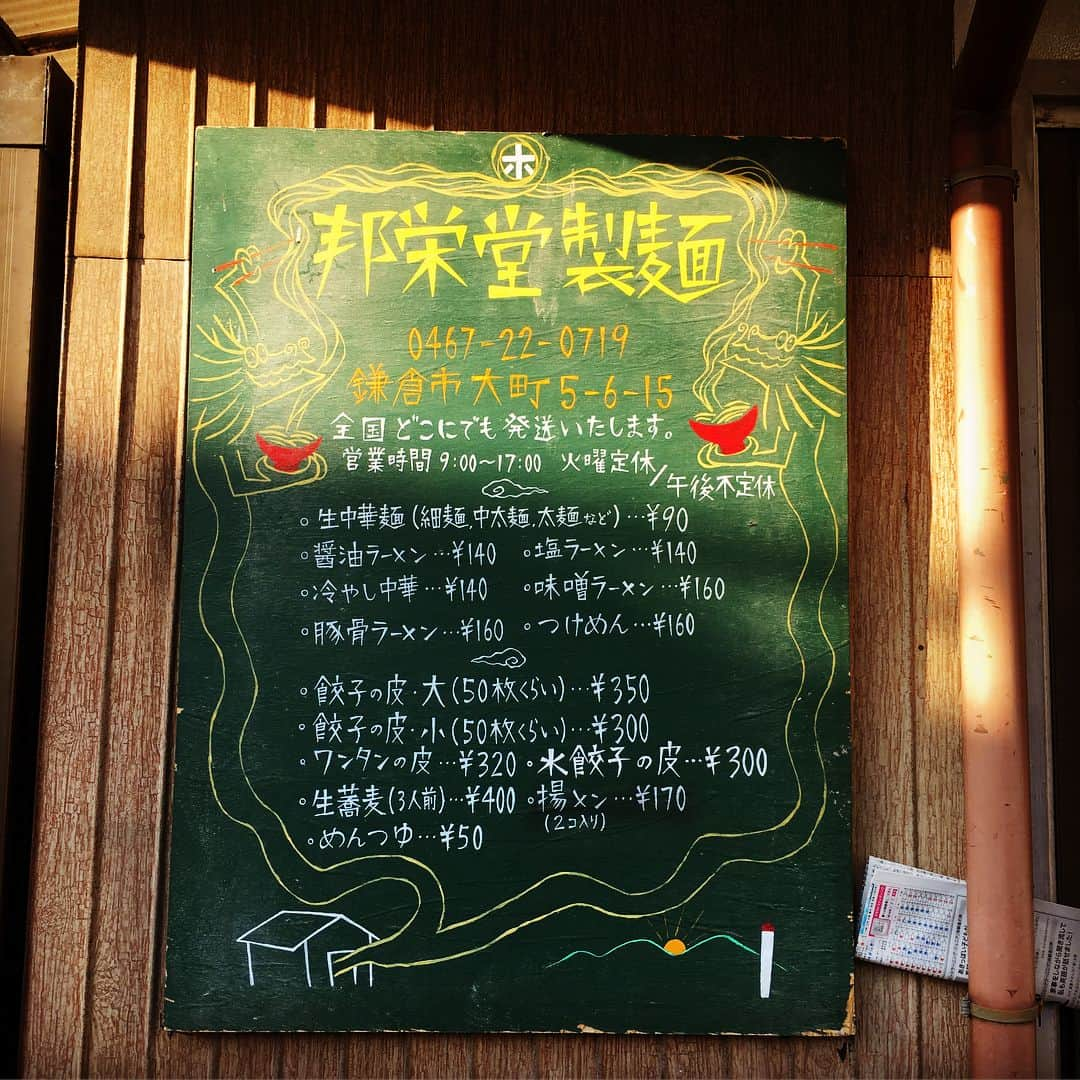 ホ
邦栄堂製麺
0467-22-0719
鎌倉市大町5-6-15
全国どこにでも発送いたします。
営業時間 9:00〜17:00 火曜定休/午後不定休
○生中華麺(細麺,中太麺,太麺など)…¥90
○醤油ラーメン…¥140 ○塩ラーメン…¥140
○冷やし中華…¥140 ○味噌ラーメン…¥160
○豚骨ラーメン…¥160 ○つけめん…¥160
○餃子の皮・大(50枚くらい)…¥350
○餃子の皮・小(50枚くらい)…¥300
○ワンタンの皮…¥320 ○水餃子の皮…¥300
○生蕎麦(3人前)…¥400 ○揚メン…¥170
(2コ入り)
○めんつゆ…¥50
家事をしながら聞き流して
私も英語が話せました!